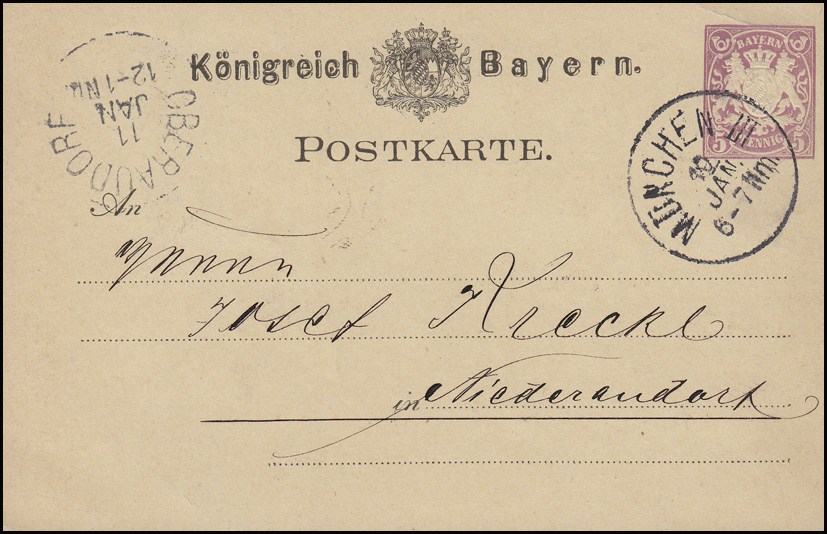 Königreich Bayern.
POSTKARTE.
5 BAYERN 5
5 PFENNIG 5
MÜNCHEN III
10
JAN.
6-7 Nm.
OBERAUDORF
11
JAN
12-1 Nm.
An
Herrn
Josef Kreckl
in Niederaudorf